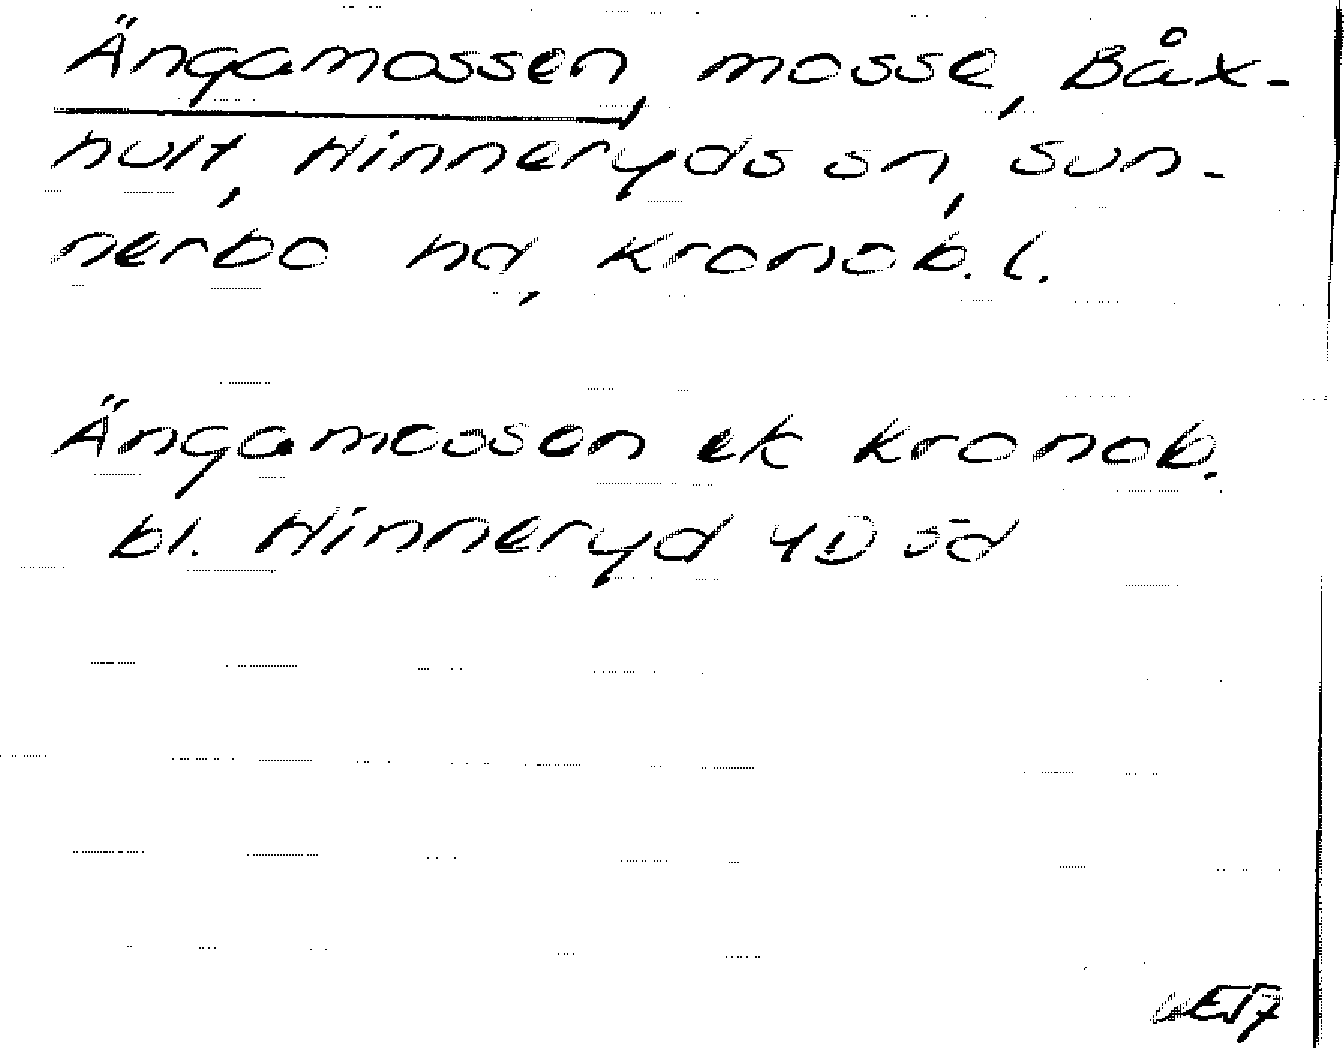 Ängamossen, mosse, Båx-
hult, Hinneryds sn, Sun-
nerbo hd, Kronob. l.
Ängamossen ek Kronob.
bl. Hinneryd 4D sd